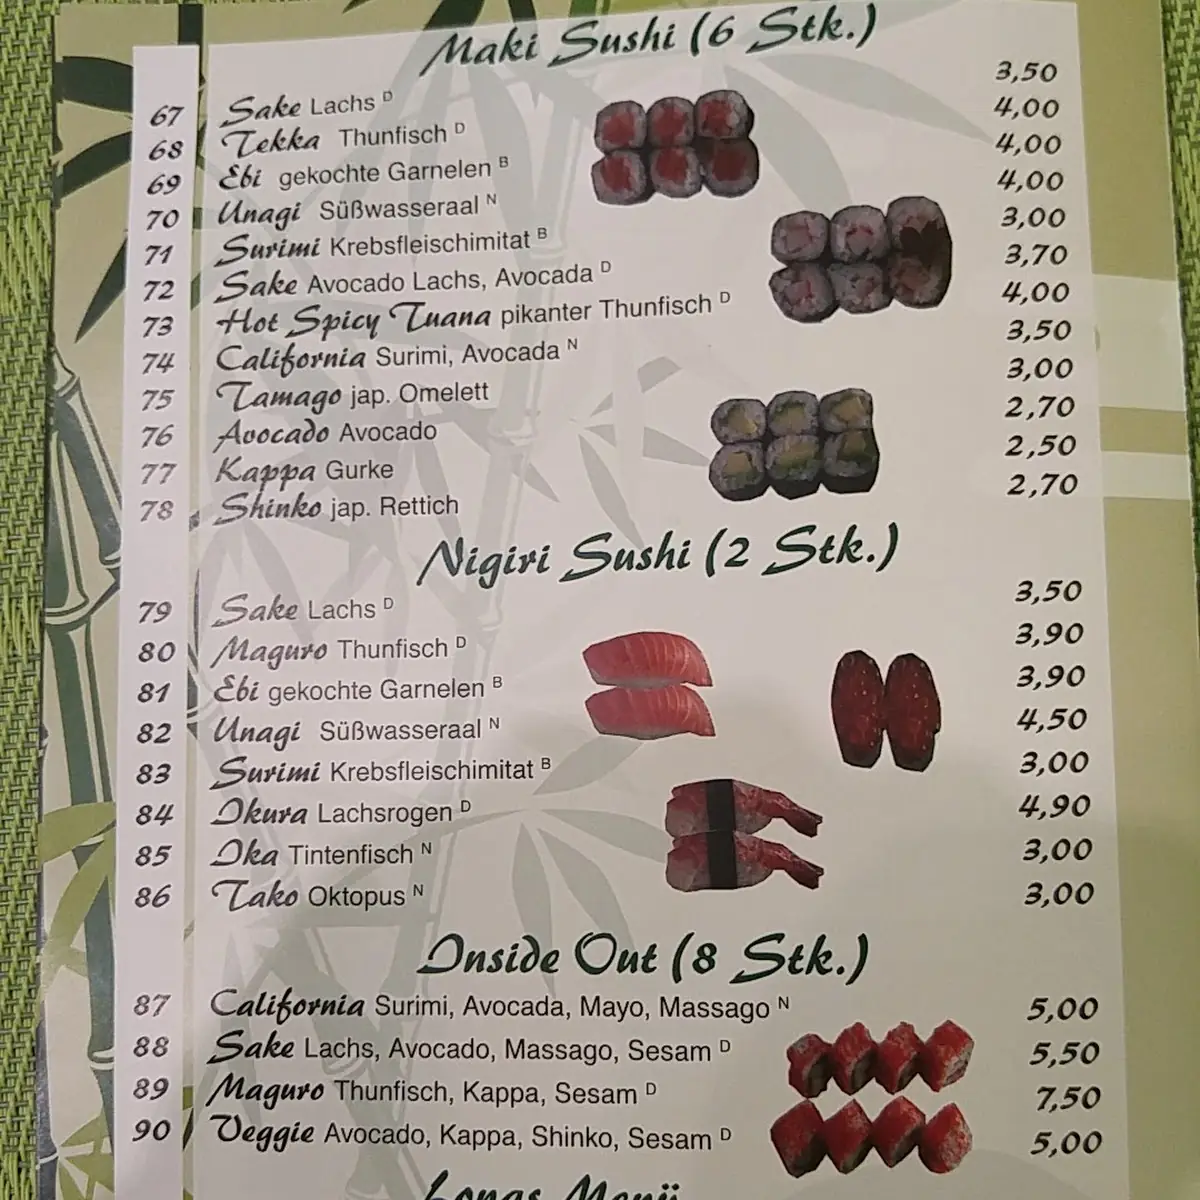 Maki Sushi (6 Stk.)
67 Sake Lachs D 3,50
68 Tekka Thunfisch D 4,00
69 Ebi gekochte Garnelen B 4,00
70 Unagi Süßwasseraal N 4,00
71 Surimi Krebsfleischimitat B 3,00
72 Sake Avocado Lachs, Avocada D 3,70
73 Hot Spicy Tuana pikanter Thunfisch D 4,00
74 California Surimi, Avocada N 3,50
75 Tamago jap. Omelett 3,00
76 Avocado Avocado 2,70
77 Kappa Gurke 2,50
78 Shinko jap. Rettich 2,70
Nigiri Sushi (2 Stk.)
79 Sake Lachs D 3,50
80 Maguro Thunfisch D 3,90
81 Ebi gekochte Garnelen B 3,90
82 Unagi Süßwasseraal N 4,50
83 Surimi Krebsfleischimitat B 3,00
84 Ikura Lachsrogen D 4,90
85 Ika Tintenfisch N 3,00
86 Tako Oktopus N 3,00
Inside Out (8 Stk.)
87 California Surimi, Avocada, Mayo, Massago N 5,00
88 Sake Lachs, Avocado, Massago, Sesam D 5,50
89 Maguro Thunfisch, Kappa, Sesam D 7,50
90 Veggie Avocado, Kappa, Shinko, Sesam D 5,00
Menü